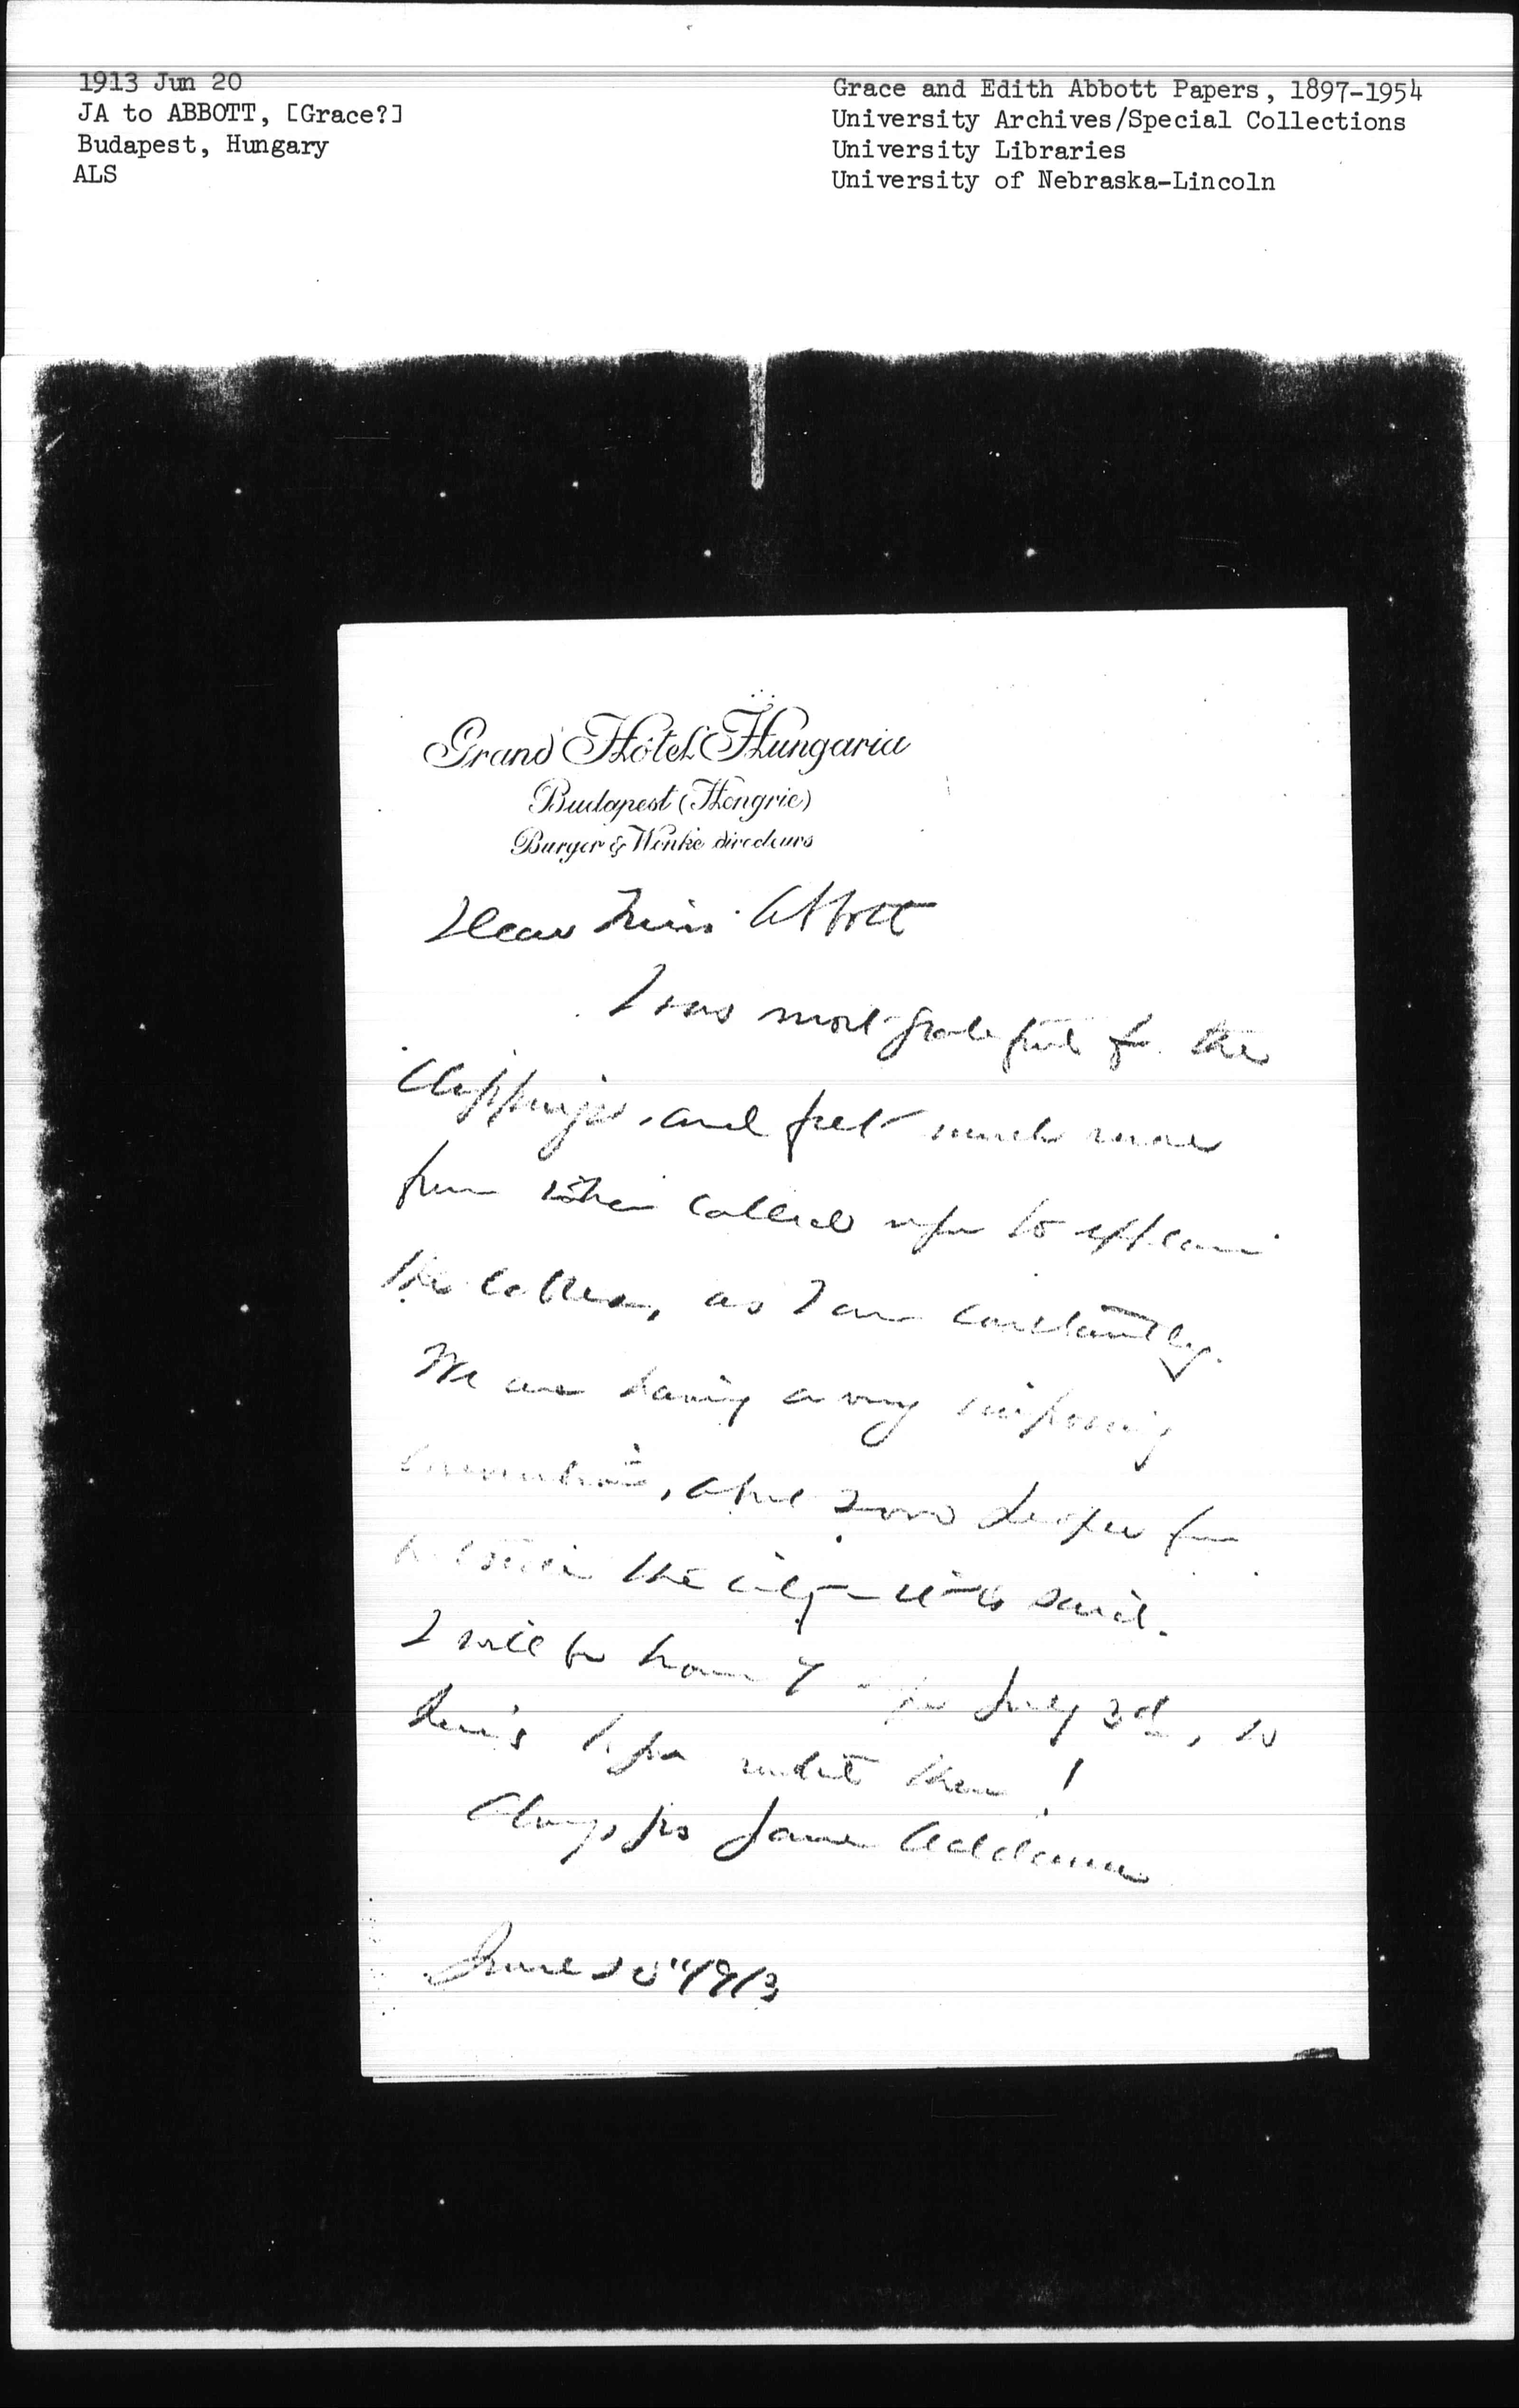 1913 Jun 20
JA to ABBOTT, [Grace?]
Budapest, Hungary
ALS
Grace and Edith Abbott Papers, 1897-1954
University Archives/Special Collections
University Libraries
University of Nebraska-Lincoln
Grand Hôtel Hungaria
Budapest (Hongrie)
Burger & Wenke directeurs
Dear Miss Abbott
I was most grateful for the
clippings, and feel much more
firm when called upon to explain
the, as I am constantly.
We are having a very imposing
convention, about 2000 people from
outside the city - it is said.
I will be home July 3d, so
don't then!
Always yrs Jane Addams
June 20" 1913